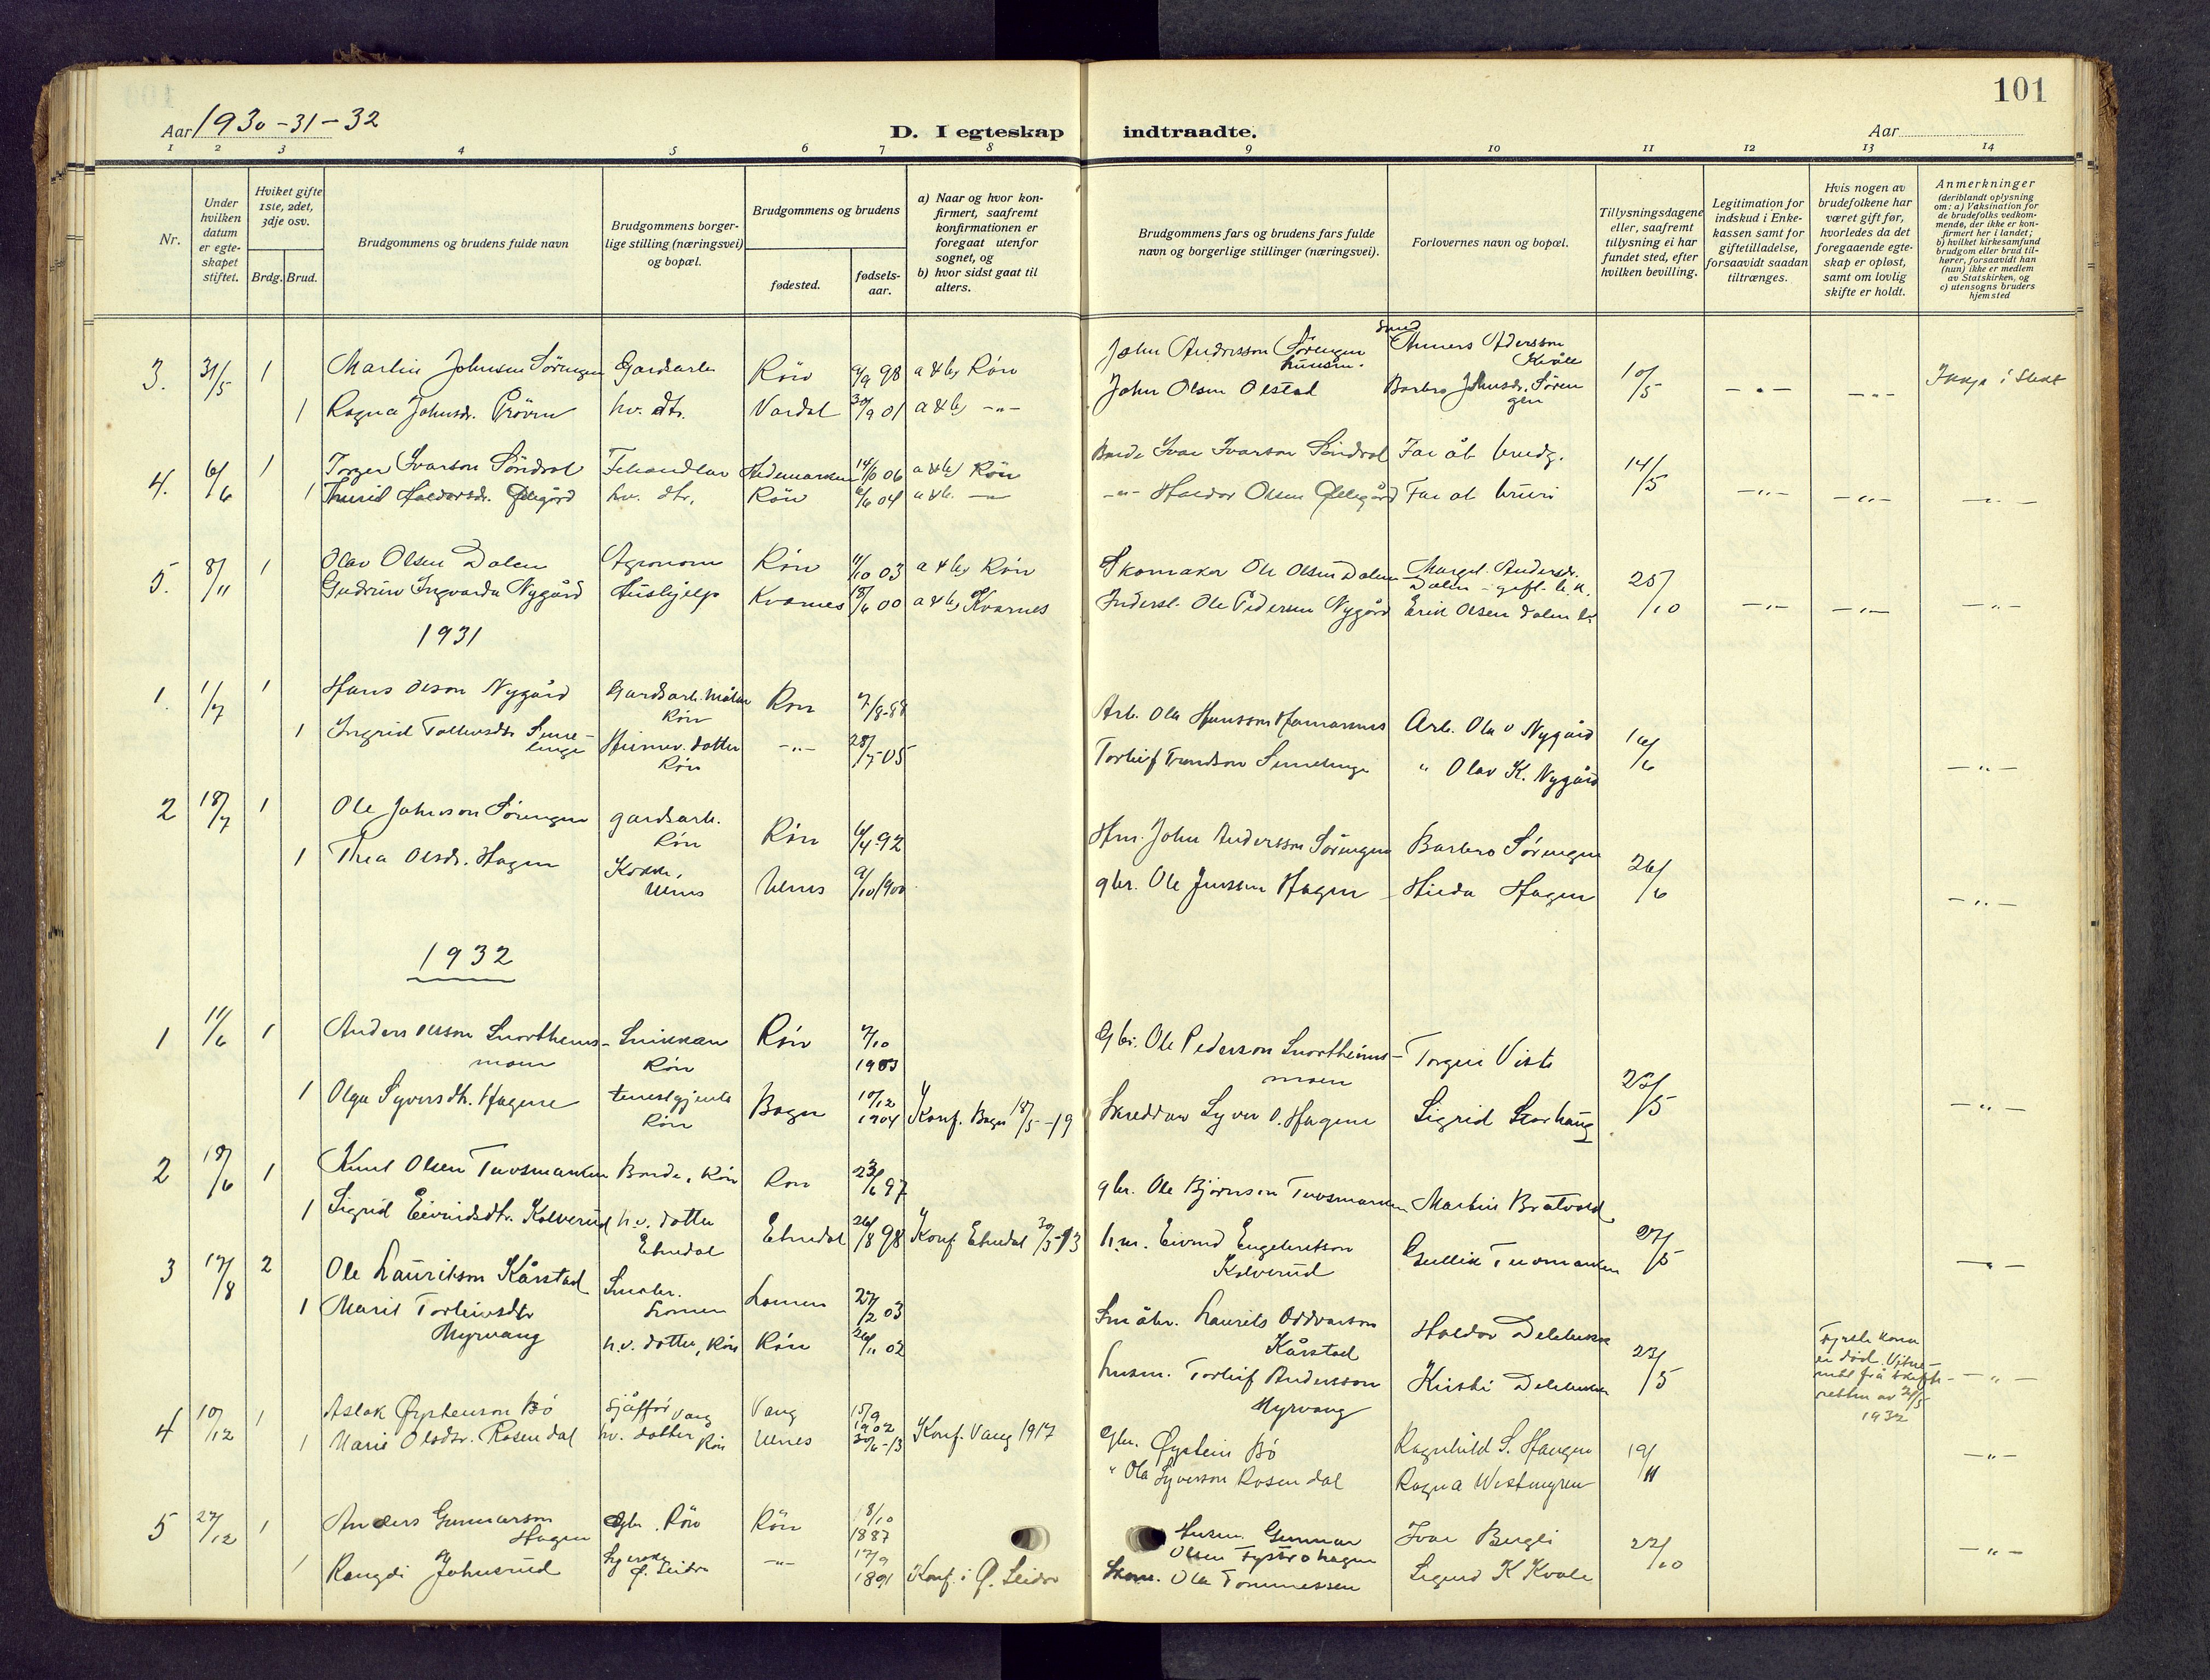 101
Aar 1930-31-32
D. I egteskap indtraadte.
Aar
1 2 3 4 5 6 7 8 9 10 11 12 13 14
Nr.
Under hvilken datum er egteskapet stiftet.
Hviket gifte 1ste, 2det, 3dje osv.
Brdg. Brud.
Brudgommens og brudens fulde navn
Brudgommens borgerlige stilling (næringsvei) og bopæl.
Brudgommens og brudens
fødested.
fødselsaar.
a) Naar og hvor konfirmert, saafremt konfirmationen er foregaat utenfor sognet, og
b) hvor sidst gaat til alters.
Brudgommens fars og brudens fars fulde navn og borgerlige stillinger (næringsvei).
Forlovernes navn og bopæl.
Tillysningsdagene eller, saafremt tillysning ei har fundet sted, efter hvilken bevilling.
Legitimation for indskud i Enkekassen samt for giftetilladelse, forsaavidt saadan tiltrænges.
Hvis nogen av brudefolkene har været gift før, hvorledes da det foregaaende egteskap er opløst, samt om lovlig skifte er holdt.
Anmerkninger
(deriblandt oplysning om: a) Vaksination for de brudefolks vedkommende, der ikke er konfirmert her i landet; b) hvilket kirkesamfund brudgom eller brud tilhører, forsaavidt han (hun) ikke er medlem av Statskirken, og c) utensogns bruders hjemsted
3. 31/5 1 Martin Johnsen Sørengen Gardsarb. Røn 9/9 98 a & b) Røn John Andersson Sørengen husm. Anners Andersson Kvåle 10/5 -"- -"- Ikkje i slekt
1 Ragna Johnsdr. Prøven hv. dtr. Vardal 30/9 01 a & b) -"- John Olsen Olstad Barbro Johnsdr. Sørengen
4. 6/6 1 Torger Ivarson Söndrol Fehandlar Hedemarken 14/10 06 a & b) Røn Bonde Ivar Ivarson Söndrol Far åt brudg. 14/5 -"- -"- -"-
1 Thurid Haldorsdr. Ødegård hv. dtr. Røn 6/6 04 a & b. -"- -"- Haldor Olsen Ødegård Far åt bruri
5. 8/11 1 Olav Olsen Dalen Agronom Røn 11/10 03 a & b) Røn Skomaker Ole Olsen Dalen Marget Andersdr. Dalen 25/10 -"- -"- -"-
Gudrun Ingvarda Nygård Hushjelp Kvarnes 18/6 00 a & b) Kvarnes Ole Pedersen Nygård Erik Olsen Dalen
1931
1. 1/7 1 Hans Olson Nygård Gardsarb. målar Røn Røn 7/8-88 Arb. Ola Hansson Arb. Ola O Nygård 14/6 -"-
1 Ingrid Tolleivsdtr. Semelenge Heimev. dotter Røn -"- 28/7-05 Torleif Trondson Semelenge " Olav K. Nygård
2 18/7 1 Ole Johnson Sørengen gardsarb. Røn Røn 6/4-92 Hm. John Andersson Sørengen Barbro Sørengen 26/6 -"-
1 Thea Olsdr. Hagen Kokke, Ulnes Ulnes 9/10 1900 gbr. Ole Jensson Hagen Hilda Hagen
1932
1 11/6 1 Anders Olsson Snortheimsmoen Snikkar Røn Røn 7/10 1903 Gbr. Ole Pederson Snortheimsmoen Torgeir Viste 28/5 -"-
1 Olga Syversdtr. Hagene tenestgjente Røn Bagn 10/12 1904 Konf. Bagn 18/5-19 Skreddar Syver O. Hagene Sigrid Storhaug
2 18/6 1 Knut Olsen Tuvsmarken Bonde, Røn Røn 23/6 97 gbr. Ole Bjørnson Tuvsmarken Martin Bråtvold 27/5 -"-
1 Sigrid Eivindsdtr. Kolverud h.v. dotter Etnedal Etnedal 26/8 98 Konf. Etnedal 30/3-13 h.m. Eivind Engebretson Kolverud Gullik Tuvsmarken
3 17/8 2 Ole Lauritson Kårstad Småbr. Lomen Lomen 27/2 03 Småbr. Laurits Oddvarson Kårstad Haldor Delebekk 23/5 Fyrste kona er død. Vitnemål frå skifteretten av 21/5 1932 -"-
1 Marit Torleivsdtr Myrvang h.v. dotter, Røn Røn 26/11 02 husm. Torleif Andersson Myrvang Kristi Delebekk
4 10/12 1 Aslak Øystenson Bö Sjåffør Vang Vang 15/9 1902 Konf. Vang 1917 Gbr. Øystein Bö Ragnhild S. Haugen 19/11 -"-
1 Marie Olsdtr. Rosendal hv. dotter Røn Ulnes 30/6-13 " Ola Syverson Rosendal Ragna Westmyren
5 27/12 1 Anders Gunnarson Hagen Gbr. Røn Røn 18/10 1887 Husm. Gunnar Olsen Fystrohagen Ivar Bergli 22/10 -"-
1 Rangdi Johnsrud Ø. Slidre -"- 17/9 1891 Konf. i Ø. Slidre Skom. Ola Tommessen Sigurd K Kvale